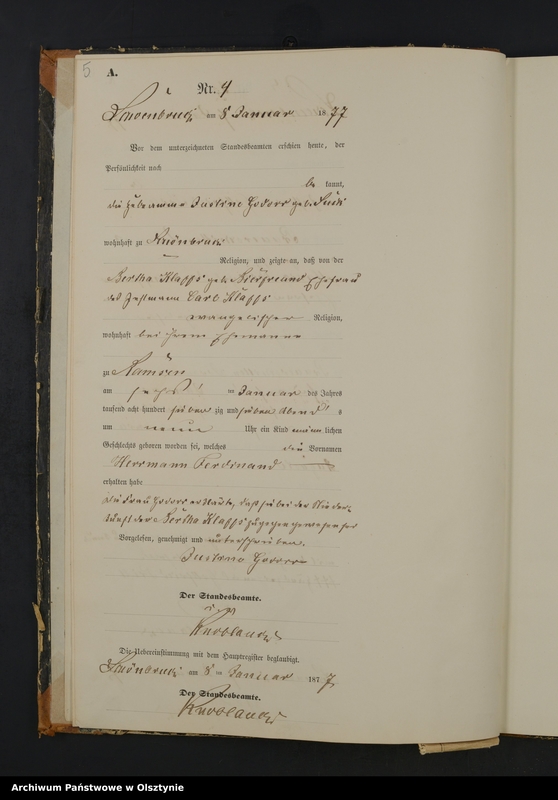 5
A.
Nr. 4
Schoenbruch am 8 Januar 1877
Vor dem unterzeichneten Standesbeamten erschien heute, der
Persönlichkeit nach
be kannt,
die Hebeamme Justine geb.
wohnhaft zu Schönbruch
Religion, und zeigte an, daß von der
Bertha Klapps geb. Ehefrau
des Carl Klapps
evangelischer Religion,
wohnhaft bei ihrem Ehemanne
zu
am sechs Januar des Jahres
tausend acht hundert sieben zig und sieben Abend s
um neun Uhr ein Kind männ lichen
Geschlechts geboren worden sei, welches die Vornamen
Herrmann Ferdinand
erhalten habe
die Frau erklärte, daß sie bei der Nieder-
kunft der Bertha Klapps zugegen gewesen sei
Vorgelesen, genehmigt und unterschrieben.
Justine
Der Standesbeamte.
Knoblauch
Die Uebereinstimmung mit dem Hauptregister beglaubigt.
Schönbruch am 8 ten Januar 1877
Der Standesbeamte.
Knoblauch
Archiwum Państwowe w Olsztynie